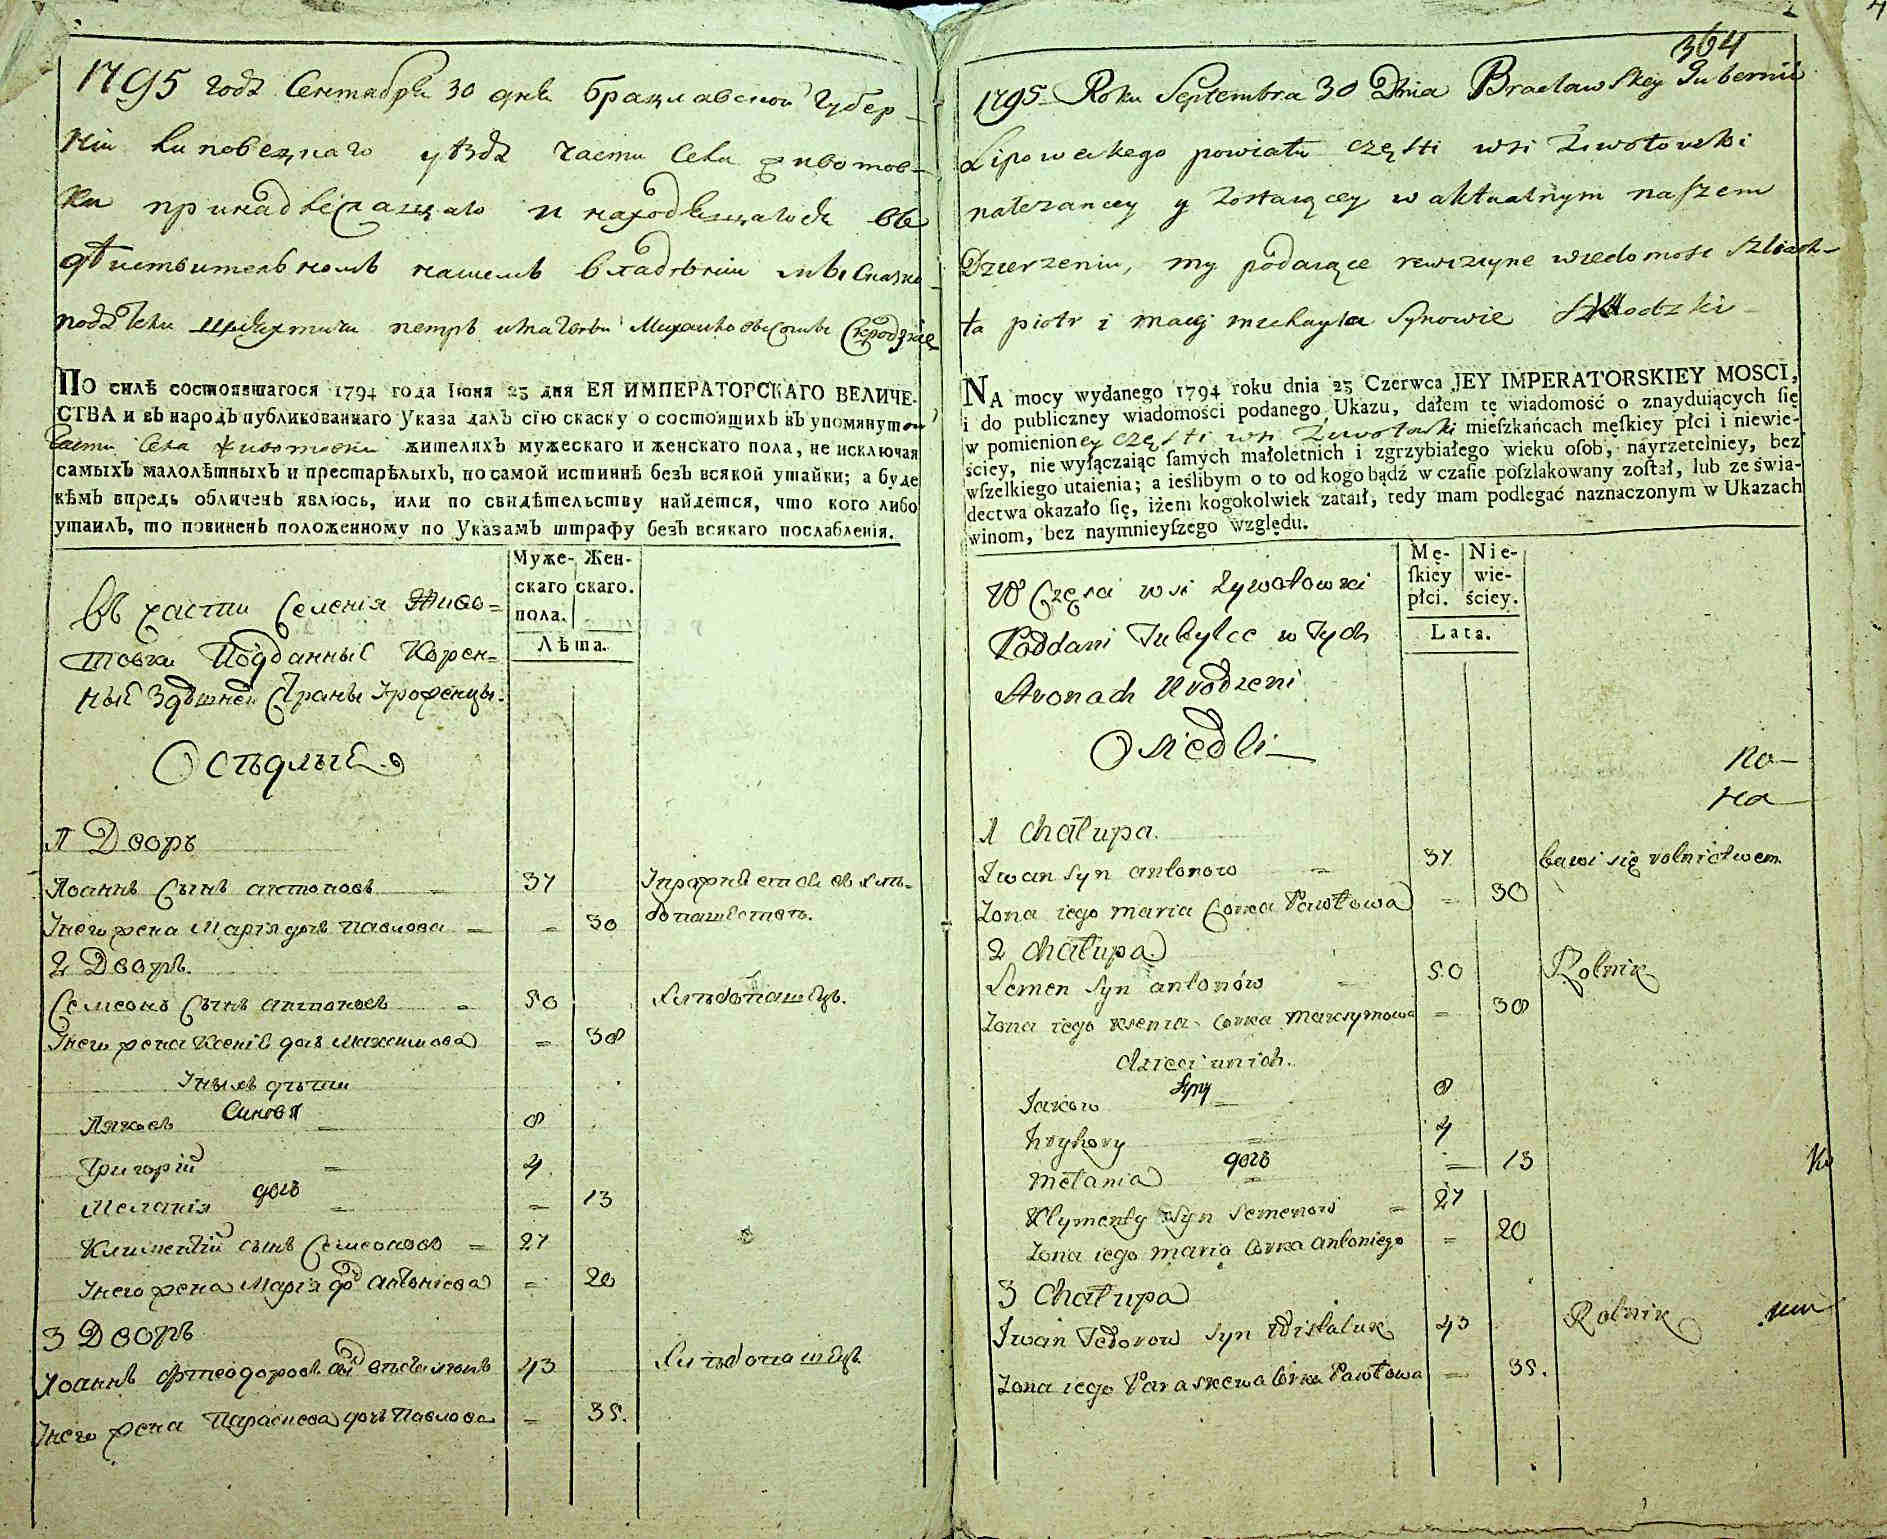 1795 годȣ Сентября 30 дня Брацлавской Губер-
ніи Липовецкаго уѣзда части Села Животов-
ки принадлежащаго и находящагося въ
дѣйствительномъ нашемъ владѣніи мы Сказко
податели Шляхтичи петръ Михайловы Сыны
По силѣ состоявшагося 1794 года Іюня 23 дня ЕЯ ИМПЕРАТОРСКАГО ВЕЛИЧЕ-
СТВА и въ народъ публикованнаго Указа далъ сію скаску о состоящихъ въ упомянутой
части Села Животовки жителяхъ мужескаго и женскаго пола, не исключая
самыхъ малолѣтныхъ и престарѣлыхъ, по самой истиннѣ безъ всякой утайки; а буде
кѣмъ впредь обличенъ явлюсь, или по свидѣтельству найдется, что кого либо
утаилъ, то повиненъ положенному по Указамъ штрафу безъ всякаго послабленія.
Муже- Жен-
скаго скаго.
пола.
Лѣта.
Въ части Селенія Живо-
товки Подданные Корен-
ные Здѣшней Страны Уроженцы.
Осѣдлые
1 Дворъ
Іоаннъ Сынъ антоновъ - 37 Упражняется въ хлѣ-
Унего жена Марія дочь Павлова - - 30 бопашестве.
2 Дворъ.
Семеонъ Сынъ антоновъ - 50 хлѣбопашецъ.
Унего жена Ксенія дочь Максимова - 38
Унихъ дѣти
Синовя
Яковъ - 8
Григорій - 4
дочь
Меланія - - 13
Климентій сынъ Семеоновъ - 27
Унего жена Марія дочь Антоніева - 20
3 Дворъ
Іоаннъ Фтеодоровъ 43 хлѣбопашецъ
Унего жена Параскева дочь Павлова - 35.
364
1795 Roku Septembra 30 Dnia Bracławskey Gubernii
Lipoweckego powiatu części wsi Żiwotowki
należancey y zostaiącey w aktualnym naszem
Dzierżeniu, my podaiące rewizyine wiedomość szliach-
ta piotr i maciej michayła synowie
NA mocy wydanego 1794 roku dnia 23 Czerwca JEY IMPERATORSKIEY MOSCI,
i do publiczney wiadomości podanego Ukazu, dałem tę wiadomość o znayduiących się
w pomienioney części wsi Żiwotowki mieſzkańcach męſkiey płci i niewie-
ściey, nie wyłączaiąc ſamych małoletnich i zgrzybiałego wieku oſob, nayrzetelniey, bez
wſzelkiego utaienia; a ieślibym o to od kogo bądź w czaſie poſzlakowany zoſtał, lub ze świa-
dectwa okazało ſię, iżem kogokolwiek zataił, tedy mam podlegać naznaczonym w Ukazach
winom, bez naymnieyſzego względu.
Mę- Nie-
ſkiey wie-
płci. ściey.
Lata.
W Części wsi Zywotowki
Poddani Tubylce w Tych
Stronach Urodzeni
Osiedli
No-
на
1 Chałupa.
Iwan syn antonow - 37 bawi się rolnictwem
Zona iego maria Corka Pawłowa - 30
2 Chałupa
Semen syn antonów - 50 Rolnik
Zona iego Ksenia Corka Maksymowa - 38
dzieci unich.
Syny
Jakow - 8
hryhory - 4
дочь
melania - - 13
Klymenty syn Semenow - 27
Zona iego maria Corka antoniego - 20
3 Chałupa
Iwan Fedorow syn 43 Rolnik
Zona iego Paraskewa Corka Pawłowa - 35.